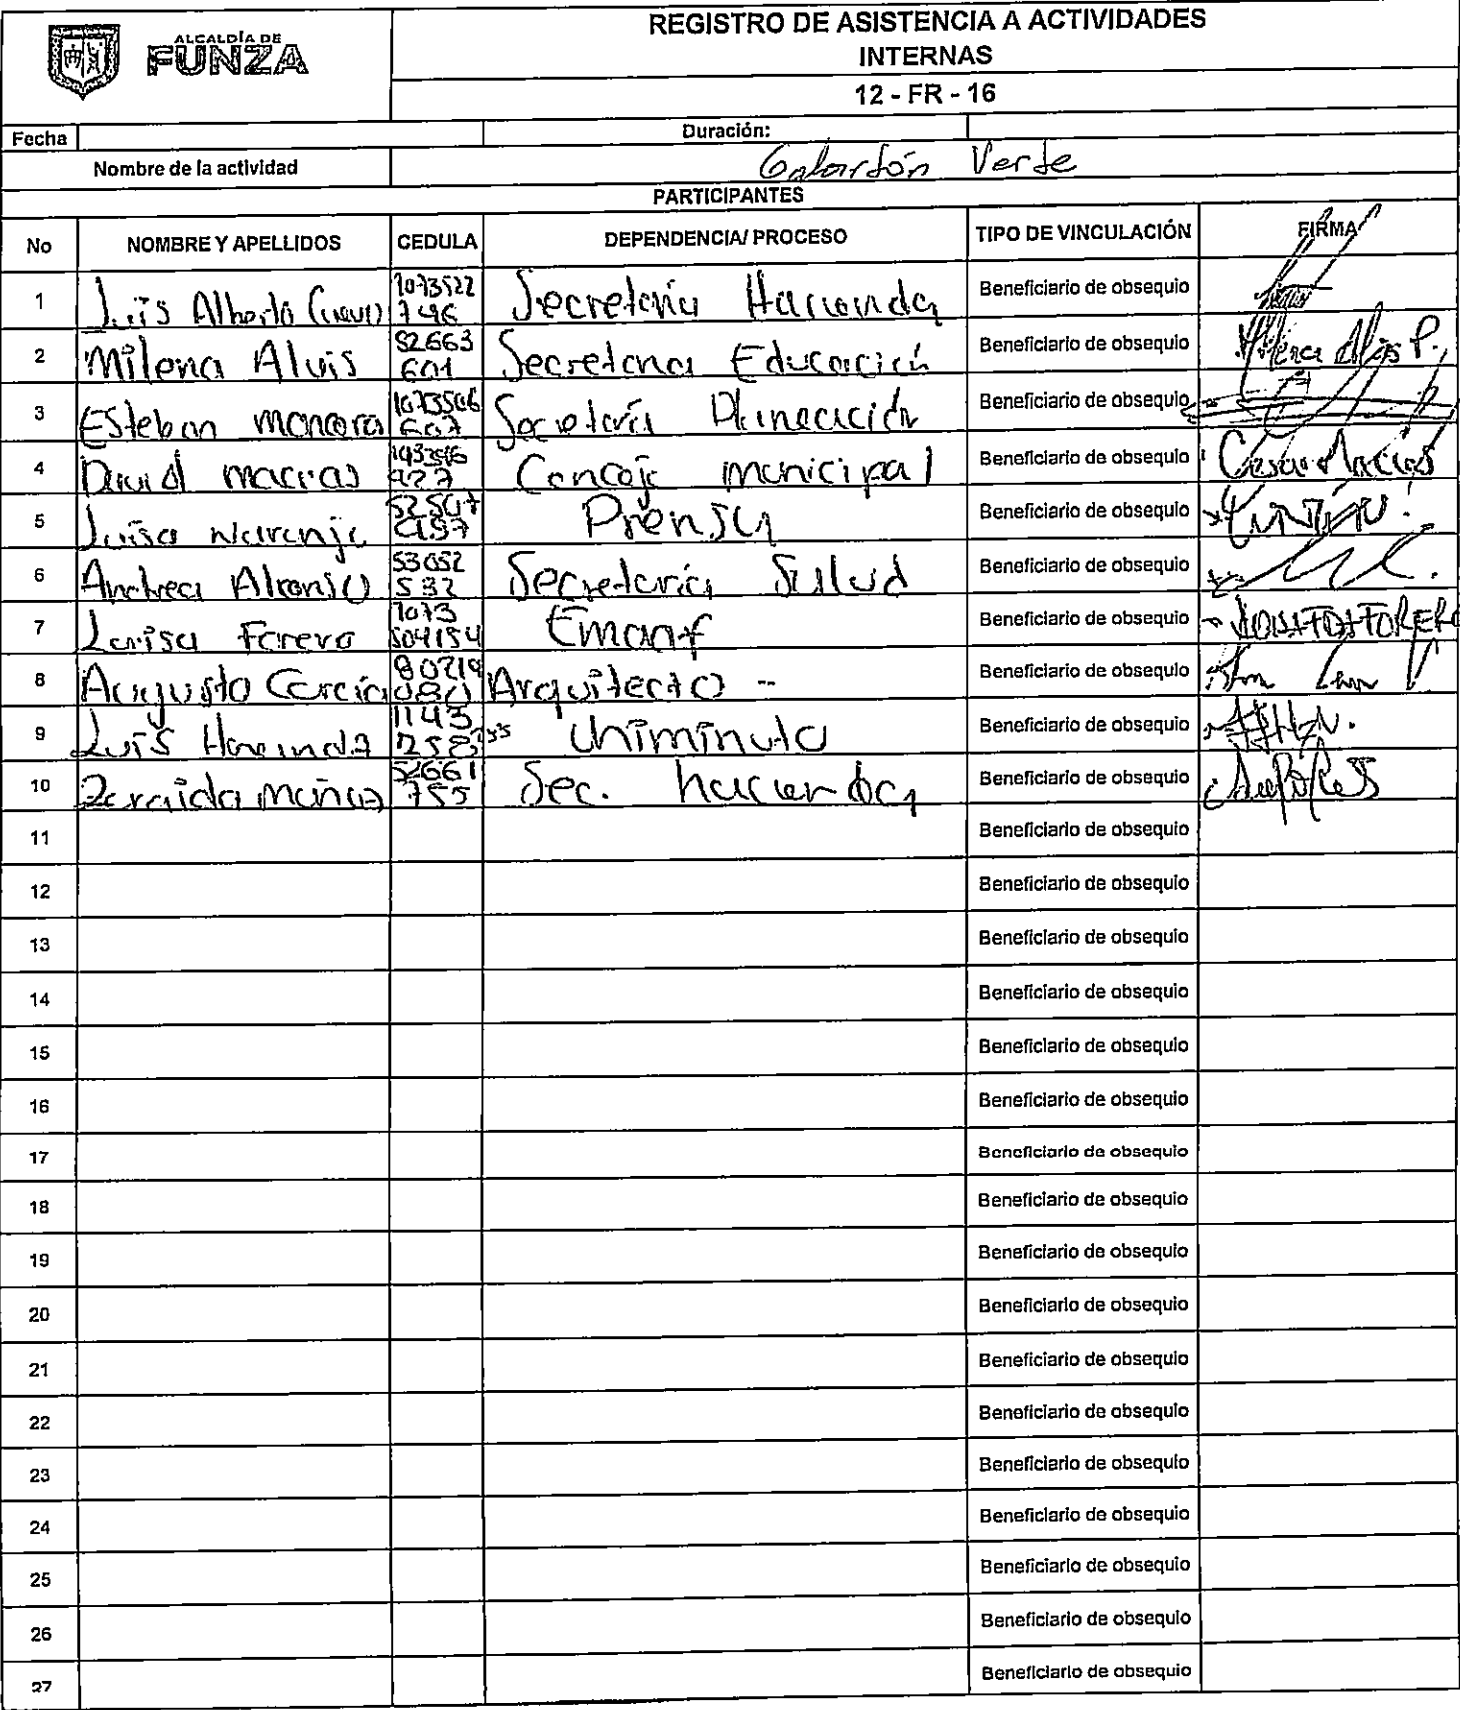 ALCALDÍA DE
FUNZA
REGISTRO DE ASISTENCIA A ACTIVIDADES
INTERNAS
12 - FR - 16
Fecha Duración:
Nombre de la actividad Galardón Verde
PARTICIPANTES
No NOMBRE Y APELLIDOS CEDULA DEPENDENCIA/ PROCESO TIPO DE VINCULACIÓN FIRMA
1 Luis Alberto 1073522 746 Secretaria Hacienda Beneficiario de obsequio
2 Milena Aluis 52663 601 Secretaria Educación Beneficiario de obsequio
3 Esteban 1073506 607 Secretaría Planeación Beneficiario de obsequio
4 David macias 927 Concejo municipal Beneficiario de obsequio Cesar Macias
5 Luisa Naranjo Prensa Beneficiario de obsequio
6 Andrea 53052 532 Secretaría Salud Beneficiario de obsequio
7 Luisa Forero 1073 504154 Emaaf Beneficiario de obsequio
8 Augusto García 80219 080 Arquitecto - Beneficiario de obsequio
9 Luis 1143 Uniminuto Beneficiario de obsequio
10 Zoraida 52661 755 Sec. hacienda Beneficiario de obsequio
11 Beneficiario de obsequio
12 Beneficiario de obsequio
13 Beneficiario de obsequio
14 Beneficiario de obsequio
15 Beneficiario de obsequio
16 Beneficiario de obsequio
17 Beneficiario de obsequio
18 Beneficiario de obsequio
19 Beneficiario de obsequio
20 Beneficiario de obsequio
21 Beneficiario de obsequio
22 Beneficiario de obsequio
23 Beneficiario de obsequio
24 Beneficiario de obsequio
25 Beneficiario de obsequio
26 Beneficiario de obsequio
27 Beneficiario de obsequio